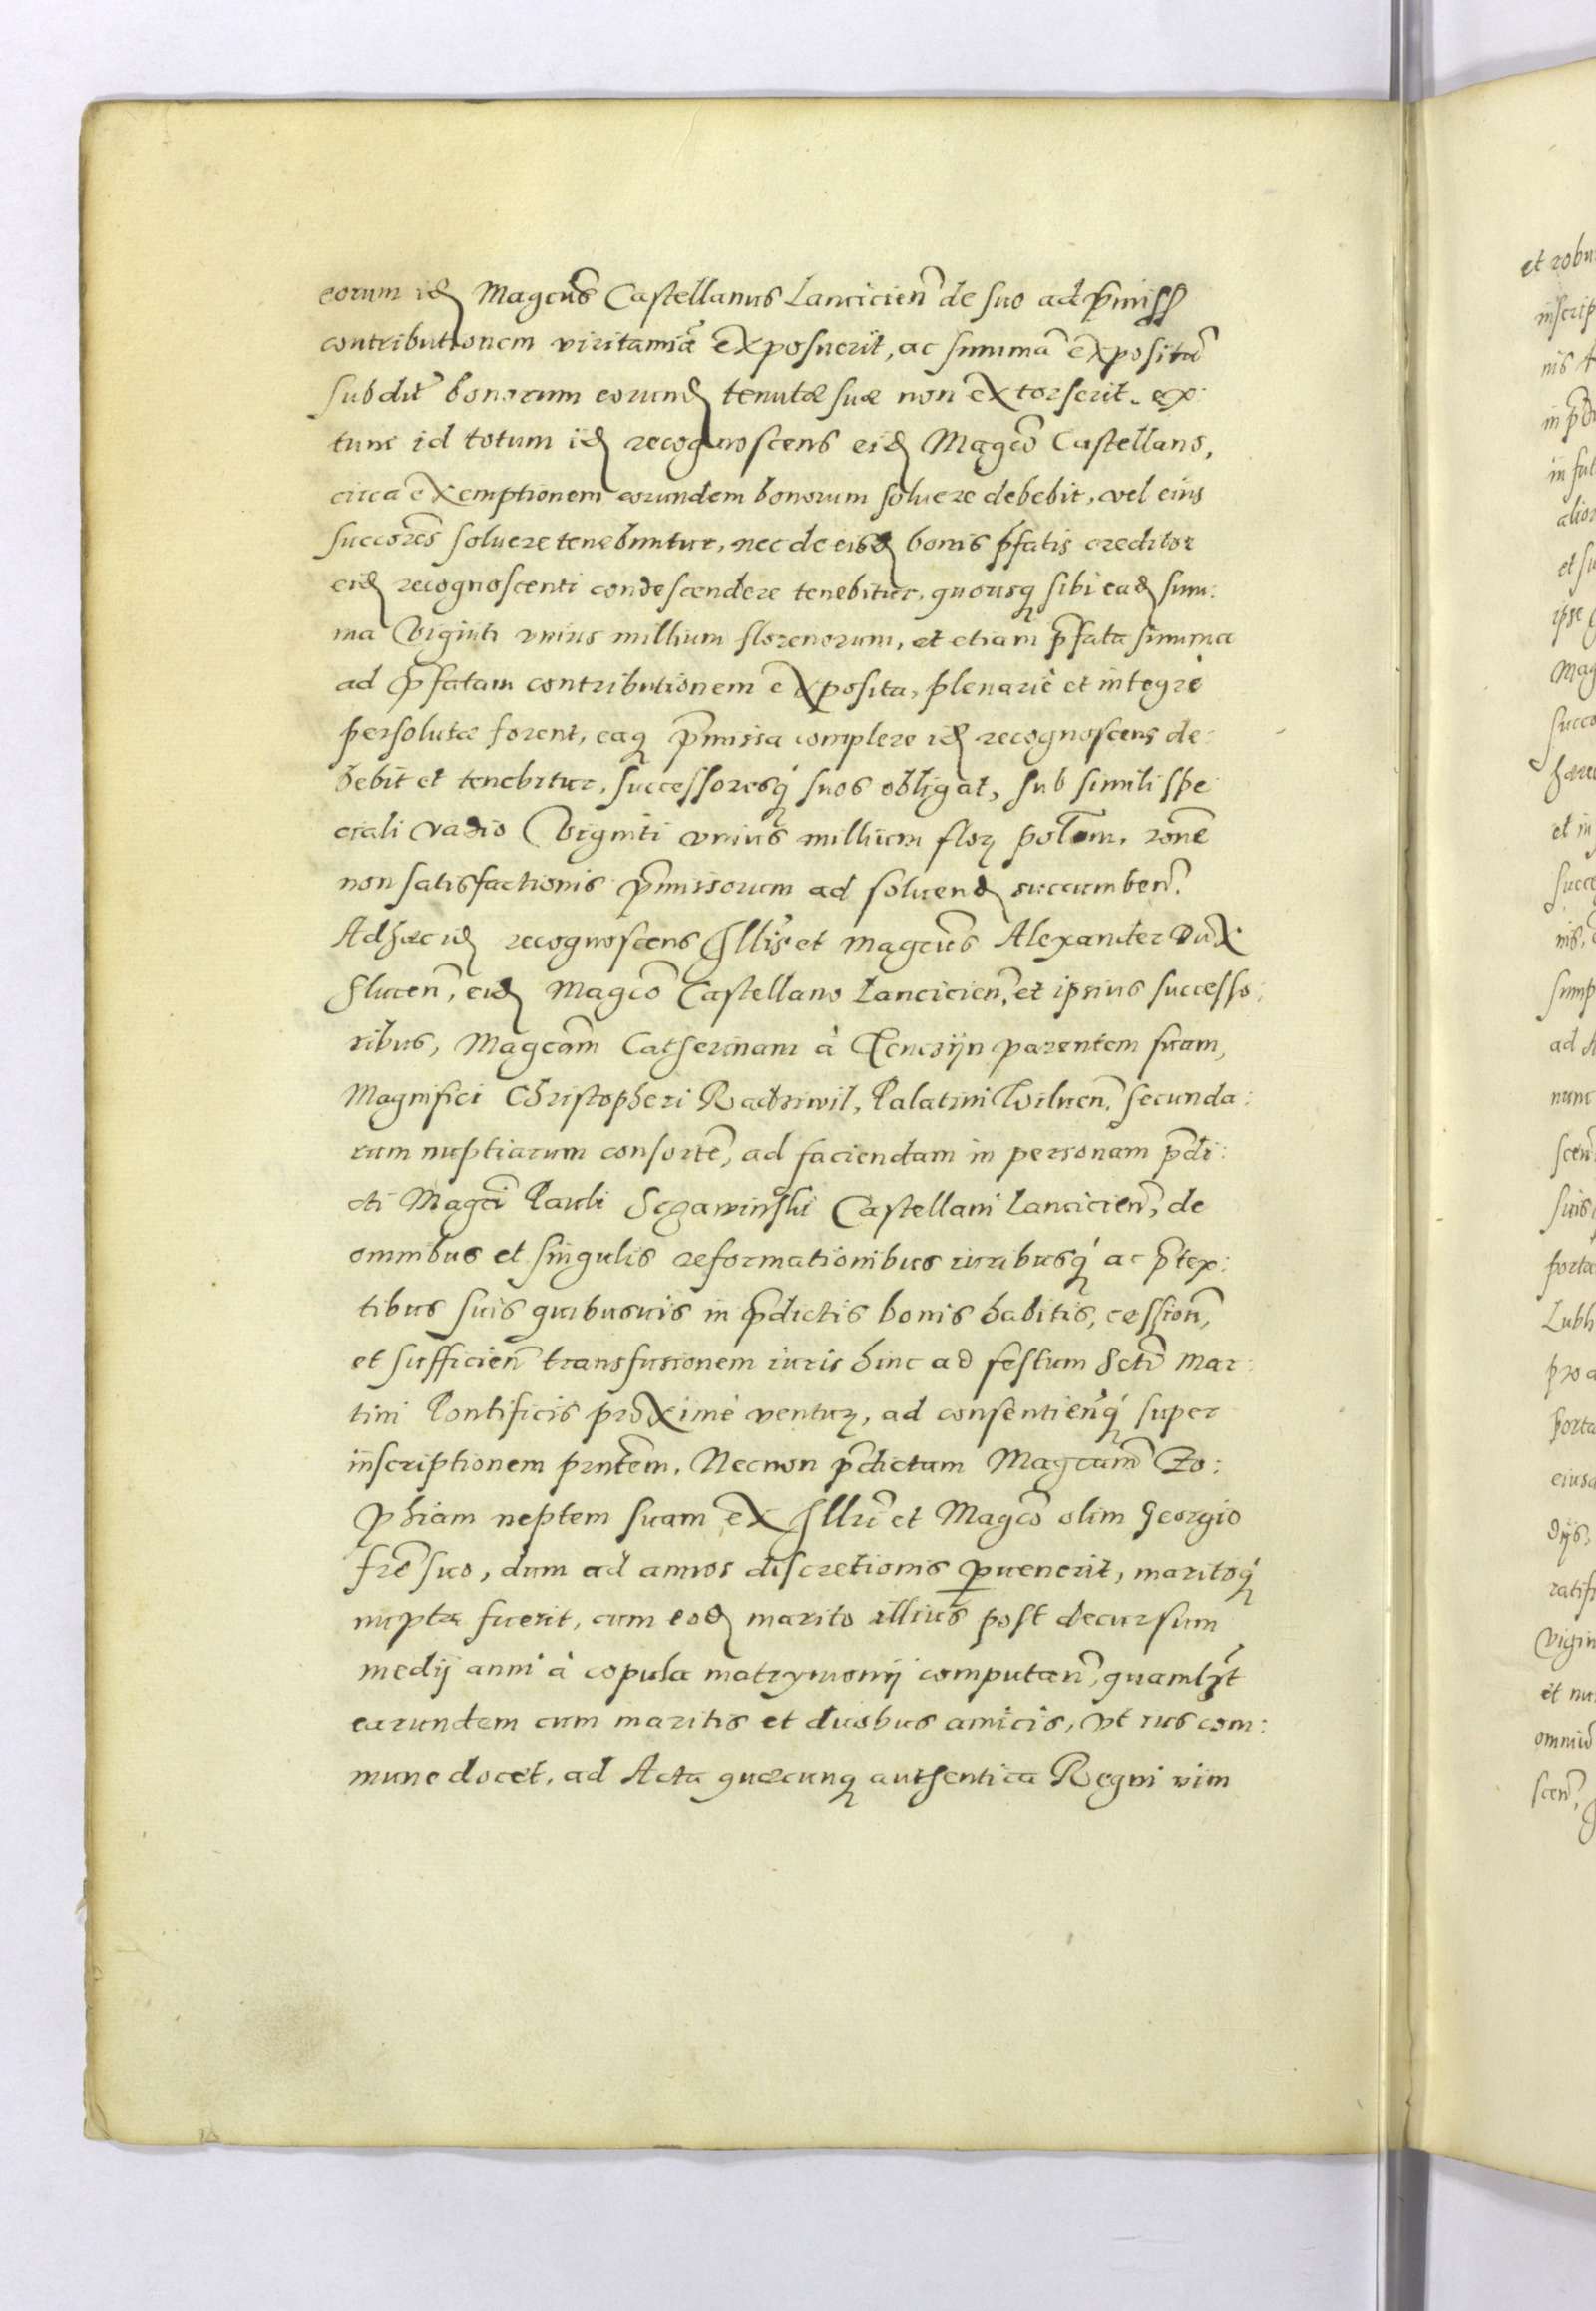 eorum id[em] Magcus Castellanus Lancicien de suo ad pmiss
contributionem viritamia exposuerit, ac summa exposita
subdit bonorum eorund tenutæ suæ non extorserit. ex:
tunc id totum id recognoscens eid Magco Castellano,
circa exemptionem eorundem bonorum soluere debebit, vel eius
succores soluere tenebuntur, nec de eisd bonis pfatis creditor
eid recognoscenti condescendere tenebitur, quousq sibi ead sum:
ma Viginti vnius millium florenorum, et etiam pfata summa
ad pfatam contributionem exposita, plenariè et integrè
persolutæ forent, eaq pmissa complere id recognoscens de:
bebit et tenebitur, successoresq suos obligat, sub simili spe
ciali vadio Viginti vnius millium flor polom. rone
non satisfactionis pmissorum ad soluend succumben.
Ad hæc id recognoscens Illis et Magcus Alexander Dux
Slucen, eid Magco Castellano Lancicien, et ipsius successo:
ribus, Magcam Catherinam à Tenczijn parentem suam,
Magnifici Christopheri Radziwil, Palatini Wilnen, secunda:
rum nuptiarum consorte, ad faciendam in personam pdi:
cti Magci Pauli Sczawinski Castellani Lancicien, de
omnibus et singulis reformationibus iuribusq ac ptex:
tibus suis quibusuis in pdictis bonis habitis, cession,
et sufficien transfusionem iuris hinc ad festum Scti Mar:
tini Pontificis proximè ventur, ad consentienq super
inscriptionem pntem. Necnon pdictam Magcam Zo:
phiam neptem suam ex Illri et Magco olim Georgio
fre suo, dum ad annos discretionis puenerit, maritoq
nupta fuerit, cum eod marito illius post decursum
medij anni à copula matrymonij computan, quamlzt
earundem cum maritis et duobus amicis, vt ius com:
mune docet, ad Acta quæcunq authentica Regni vim
et robu
inscrip
nis
in
in
alior
ipse
Mag
succo
et in
succe
nis,
ad
nunc
scen
suis
porta
Lubl
pro a
porta
eius
dijs,
ratif
Vigin
et
omniu
scen,